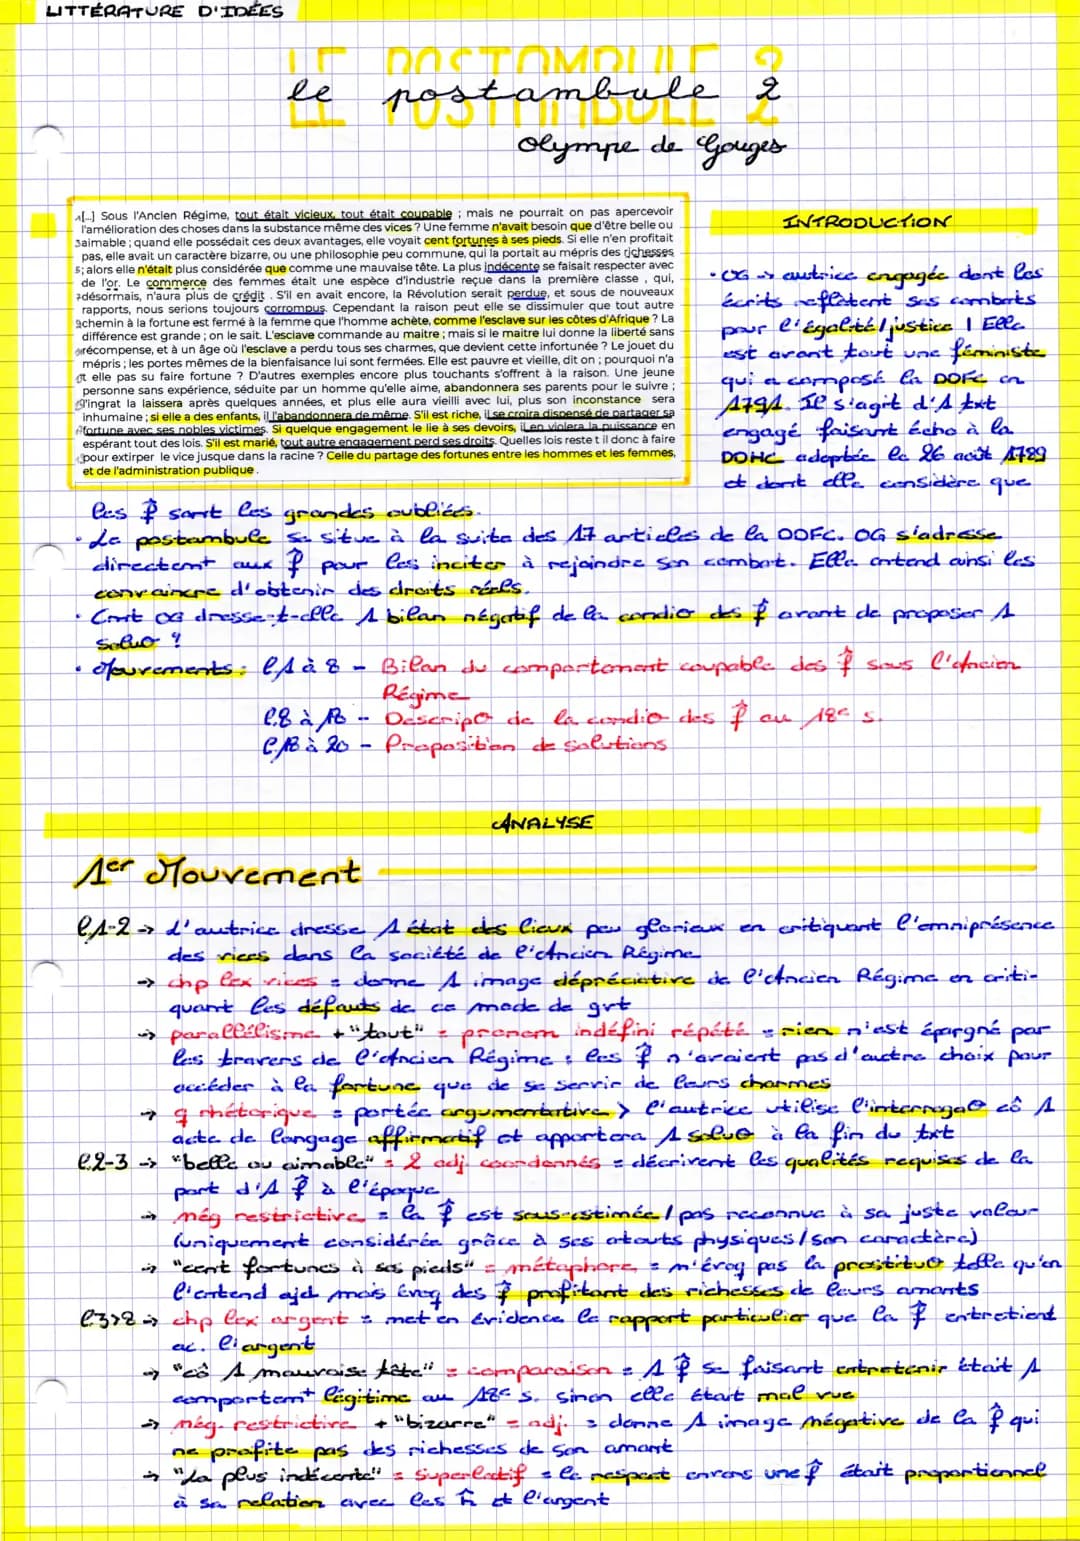 LITTÉRATURE D'IDÉES
LE POSTAMBULE 2
le postambule 2
Olympe de Gouges
[...] Sous l'Ancien Régime, tout était vicieux, tout était coupable ; mais ne pourrait on pas apercevoir
l'amélioration des choses dans la substance même des vices ? Une femme n'avait besoin que d'être belle ou
aimable ; quand elle possédait ces deux avantages, elle voyait cent fortunes à ses pieds. Si elle n'en profitait
pas, elle avait un caractère bizarre, ou une philosophie peu commune, qui la portait au mépris des richesses
; alors elle n'était plus considérée que comme une mauvaise tête. La plus indécente se faisait respecter avec
de l'or. Le commerce des femmes était une espèce d'industrie reçue dans la première classe , qui,
désormais, n'aura plus de crédit . S'il en avait encore, la Révolution serait perdue, et sous de nouveaux
rapports, nous serions toujours corrompus. Cependant la raison peut elle se dissimuler que tout autre
chemin à la fortune est fermé à la femme que l'homme achète, comme l'esclave sur les côtes d'Afrique ? La
différence est grande ; on le sait. L'esclave commande au maître ; mais si le maître lui donne la liberté sans
récompense, et à un âge où l'esclave a perdu tous ses charmes, que devient cette infortunée ? Le jouet du
mépris ; les portes mêmes de la bienfaisance lui sont fermées. Elle est pauvre et vieille, dit on ; pourquoi n'a
t elle pas su faire fortune ? D'autres exemples encore plus touchants s'offrent à la raison. Une jeune
personne sans expérience, séduite par un homme qu'elle aime, abandonnera ses parents pour le suivre ;
l'ingrat la laissera après quelques années, et plus elle aura vieilli avec lui, plus son inconstance sera
inhumaine ; si elle a des enfants, il l'abandonnera de même. S'il est riche, il se croira dispensé de partager sa
fortune avec ses nobles victimes. Si quelque engagement le lie à ses devoirs, il en violera la puissance en
espérant tout des lois. S'il est marié, tout autre engagement perd ses droits. Quelles lois reste t il donc à faire
pour extirper le vice jusque dans la racine ? Celle du partage des fortunes entre les hommes et les femmes,
et de l'administration publique .
INTRODUCTION
• OG → autrice engagée dont les
écrits reflètent ses combats
pour l'égalité/justice | Elle
est avant tout une féministe
qui a composé la DDFC en
1791. Il s'agit d'1 txt
engagé faisant écho à la
DDHC adoptée le 26 août 1789
et dont elle considère que
les f̂ sont les grandes oubliées.
• Le postambule se situe à la suite des 17 articles de la DDFC. OG s'adresse
directemt aux f̂ pour les inciter à rejoindre son combat. Elle entend ainsi les
convaincre d'obtenir des droits réels.
• Cmt OG dresse-t-elle 1 bilan négatif de la condio des f̂ avant de proposer 1
soluo ?
• Mouvements : l.1 à 8 - Bilan du comportement coupable des f̂ sous l'Ancien
Régime
l.8 à 18 - Descripo de la condio des f̂ au 18e s.
l.18 à 20 - Proposition de solutions
ANALYSE
1er Mouvement
l.1-2 → L'autrice dresse 1 état des lieux peu glorieux en critiquant l'omniprésence
des vices dans la société de l'Ancien Régime
→ chp lex vices = donne 1 image dépréciative de l'Ancien Régime en criti-
quant les défauts de ce mode de gvt
→ parallélisme + "tout" = pronom indéfini répété = rien n'est épargné par
les travers de l'Ancien Régime : les f̂ n'avaient pas d'autre choix pour
accéder à la fortune que de se servir de leurs charmes
→ q rhétorique = portée argumentative > l'autrice utilise l'interrogao cô 1
acte de langage affirmatif et apportera 1 soluo à la fin du txt
l.2-3 → "belle ou aimable" = 2 adj. coordonnés = décrivent les qualités requises de la
part d'1 f̂ à l'époque
→ nég restrictive = la f̂ est sous-estimée / pas reconnue à sa juste valeur
(uniquement considérée grâce à ses atouts physiques/son caractère)
→ "cent fortunes à ses pieds" = métaphore = n'évoq pas la prostituo telle qu'on
l'entend ajd mais évoq des f̂ profitant des richesses de leurs amants
l.3>8 → chp lex argent = met en évidence le rapport particulier que la f̂ entretient
ac. l'argent
→ "cô 1 mauvaise tête" = comparaison = 1 f̂ se faisant entretenir était 1
comportemt légitime au 18e s. sinon elle était mal vue
→ nég. restrictive + "bizarre" = adj. = donne 1 image négative de la f̂ qui
ne profite pas des richesses de son amant
→ "La plus indécente" = superlatif = le respect envers une f̂ était proportionnel
à sa relation avec les ĥ et l'argent